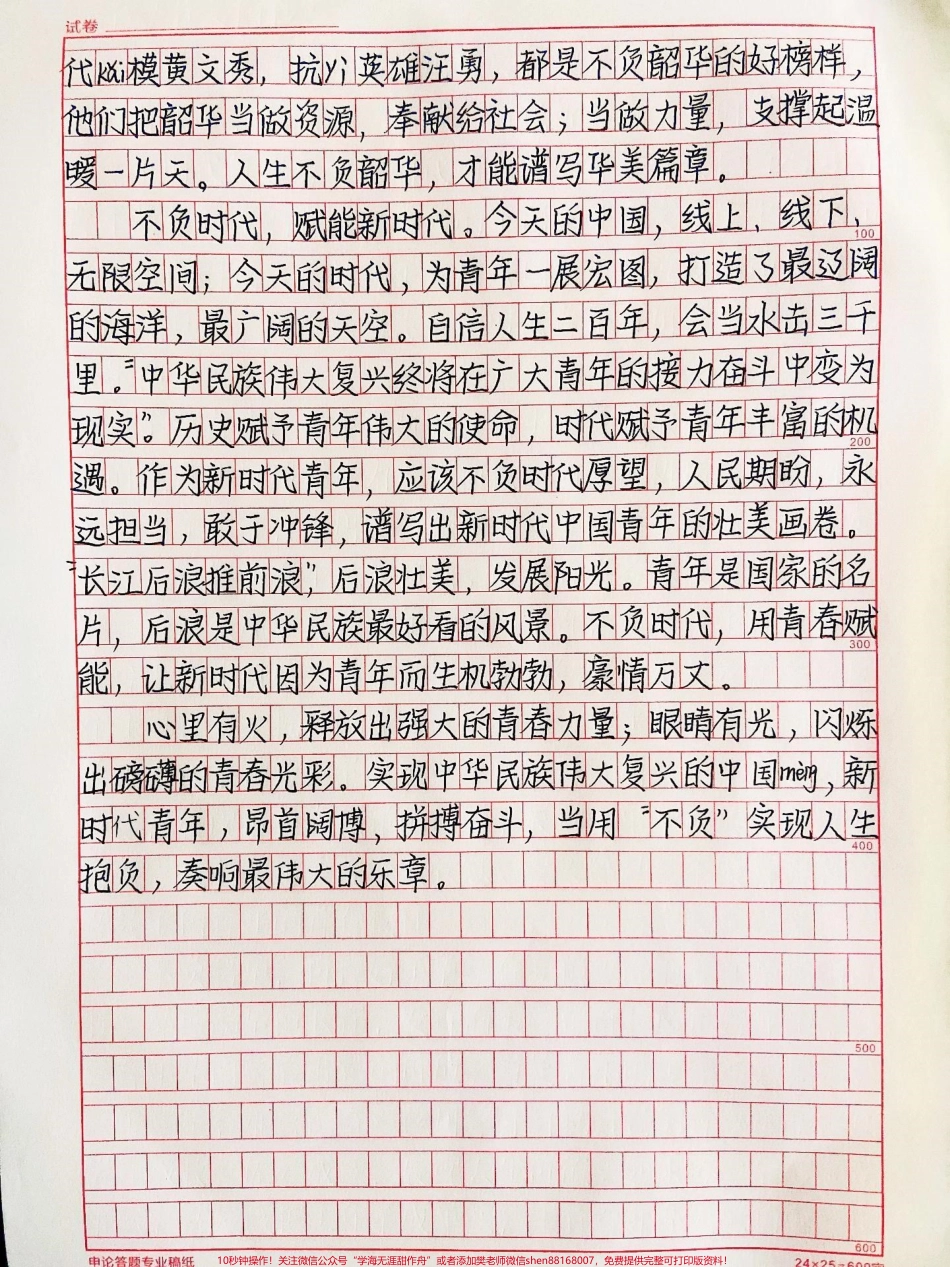 试卷
代kǎi模黄文秀，抗yì英雄汪勇，都是不负韶华的好榜样，
他们把韶华当做资源，奉献给社会；当做力量，支撑起温
暖一片天。人生不负韶华，才能谱写华美篇章。
不负时代，赋能新时代。今天的中国，线上、线下、
100
无限空间；今天的时代，为青年一展宏图，打造了最辽阔
的海洋，最广阔的天空。自信人生二百年，会当水击三千
里。“中华民族伟大复兴终将在广大青年的接力奋斗中变为
现实”。历史赋予青年伟大的使命，时代赋予青年丰富的机
200
遇。作为新时代青年，应该不负时代厚望，人民期盼，永
远担当，敢于冲锋，谱写出新时代中国青年的壮美画卷。
“长江后浪推前浪”，后浪壮美，发展阳光。青年是国家的名
片，后浪是中华民族最好看的风景。不负时代，用青春赋
300
能，让新时代因为青年而生机勃勃，豪情万丈。
心里有火，释放出强大的青春力量；眼睛有光，闪烁
出磅礴的青春光彩。实现中华民族伟大复兴的中国mèng，新
时代青年，昂首阔博，拼搏奋斗，当用“不负”实现人生
400
抱负，奏响最伟大的乐章。
500
600
申论答题专业稿纸
10秒钟操作！关注微信公众号“学海无涯甜作舟”或者添加樊老师微信shen88168007，免费提供完整可打印版资料！
24×25=600字